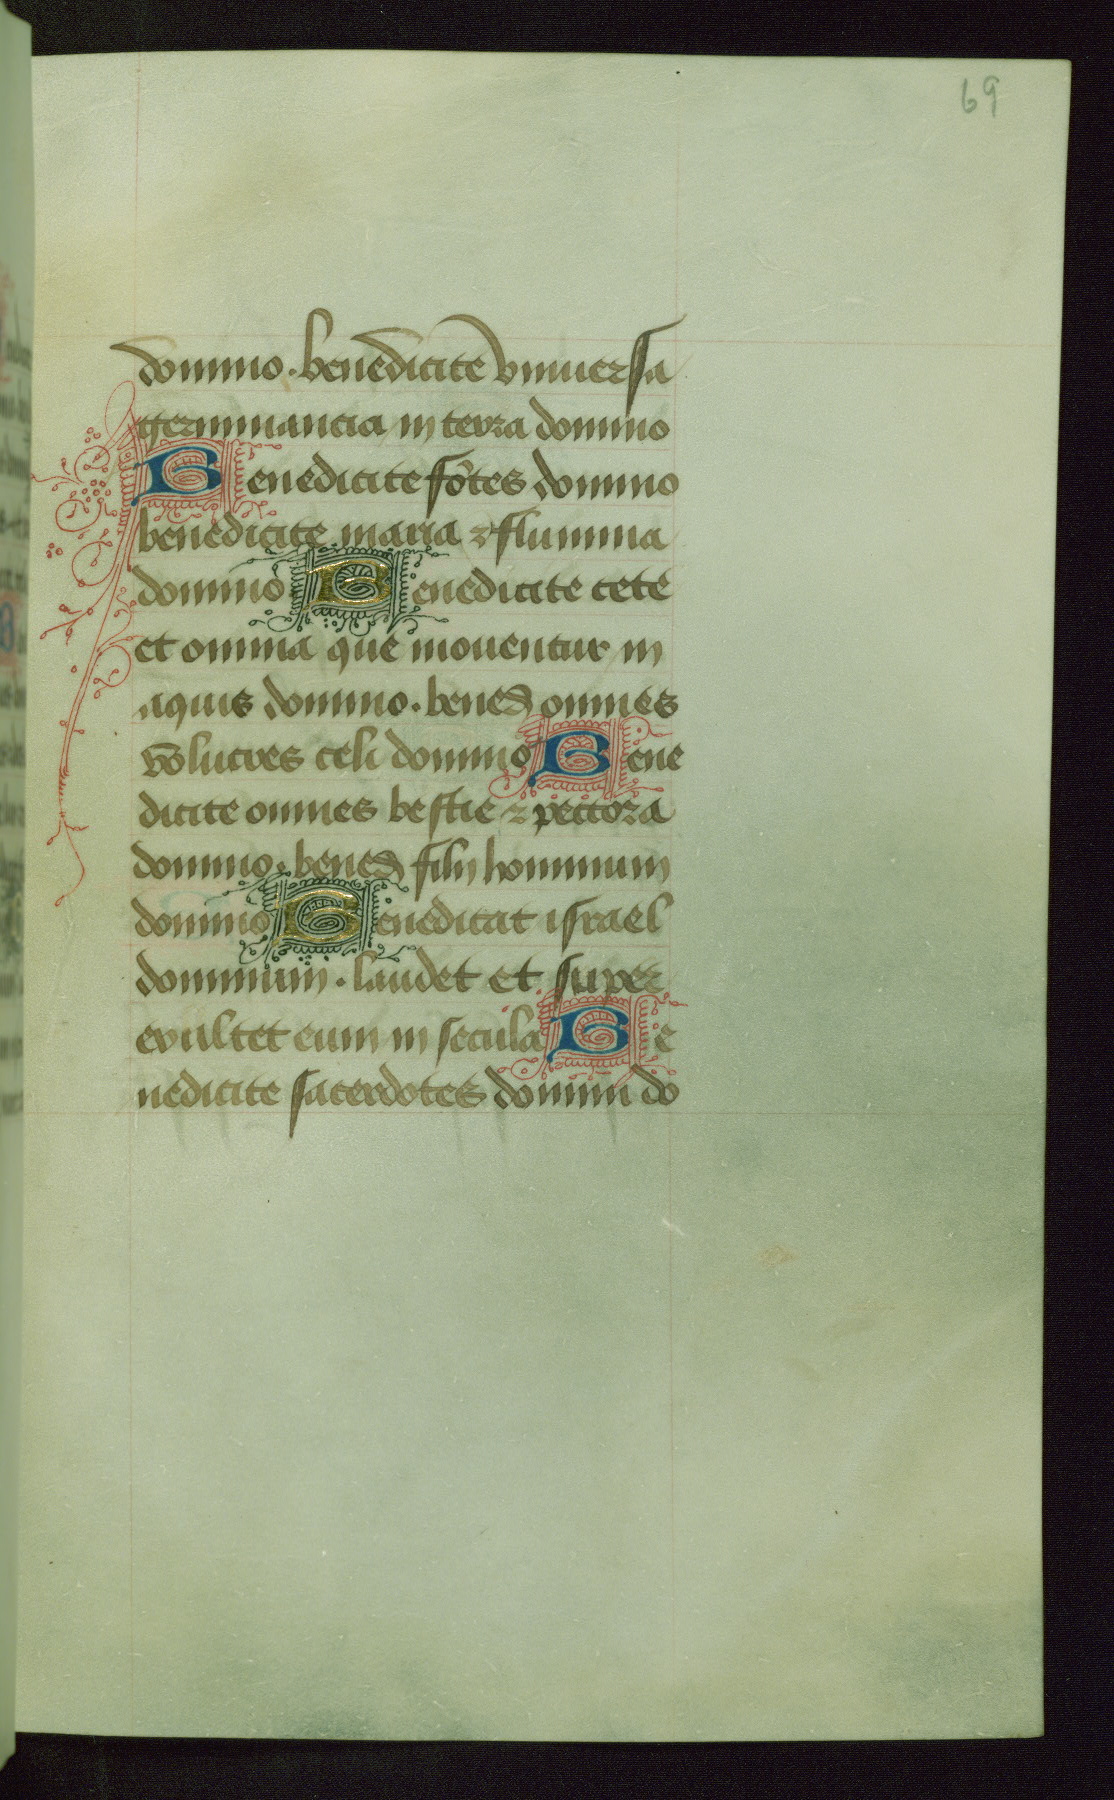 69
domino. benedicite vniuersa
germinancia in terra domino
Benedicite fōtes domino
benedicite maria ⁊ flumina
domino Benedicite cete
et omnia que mouentur in
aquis domino. bened̄ omnes
volucres celi domino Bene
dicite omnes bestie ⁊ pectora
domino. bened̄ filij hominum
domino Benedicat israel
dominum. laudet et super
exultet eum in secula Be
nedicite sacerdotes domini do